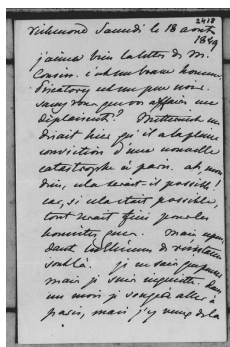 2418
Richmond Samedi le 18 août
1849
J'aime bien la lettre de M.
Cousin. C'est un brave homme.
Piscatory est un peu
vos affaires me
déplaisent? Metternich me
disait hier qu'il a la pleine
conviction d'une nouvelle
catastrophe à Paris. ah, mon
dieu, cela serait-il possible!
car, si cela était possible,
tout serait fini pour les
honnêtes gens. Mais
dant
là. Je ne sais
mais je suis inquiète. dans
un mois je songe à aller à
Paris, mais j'y veux de la